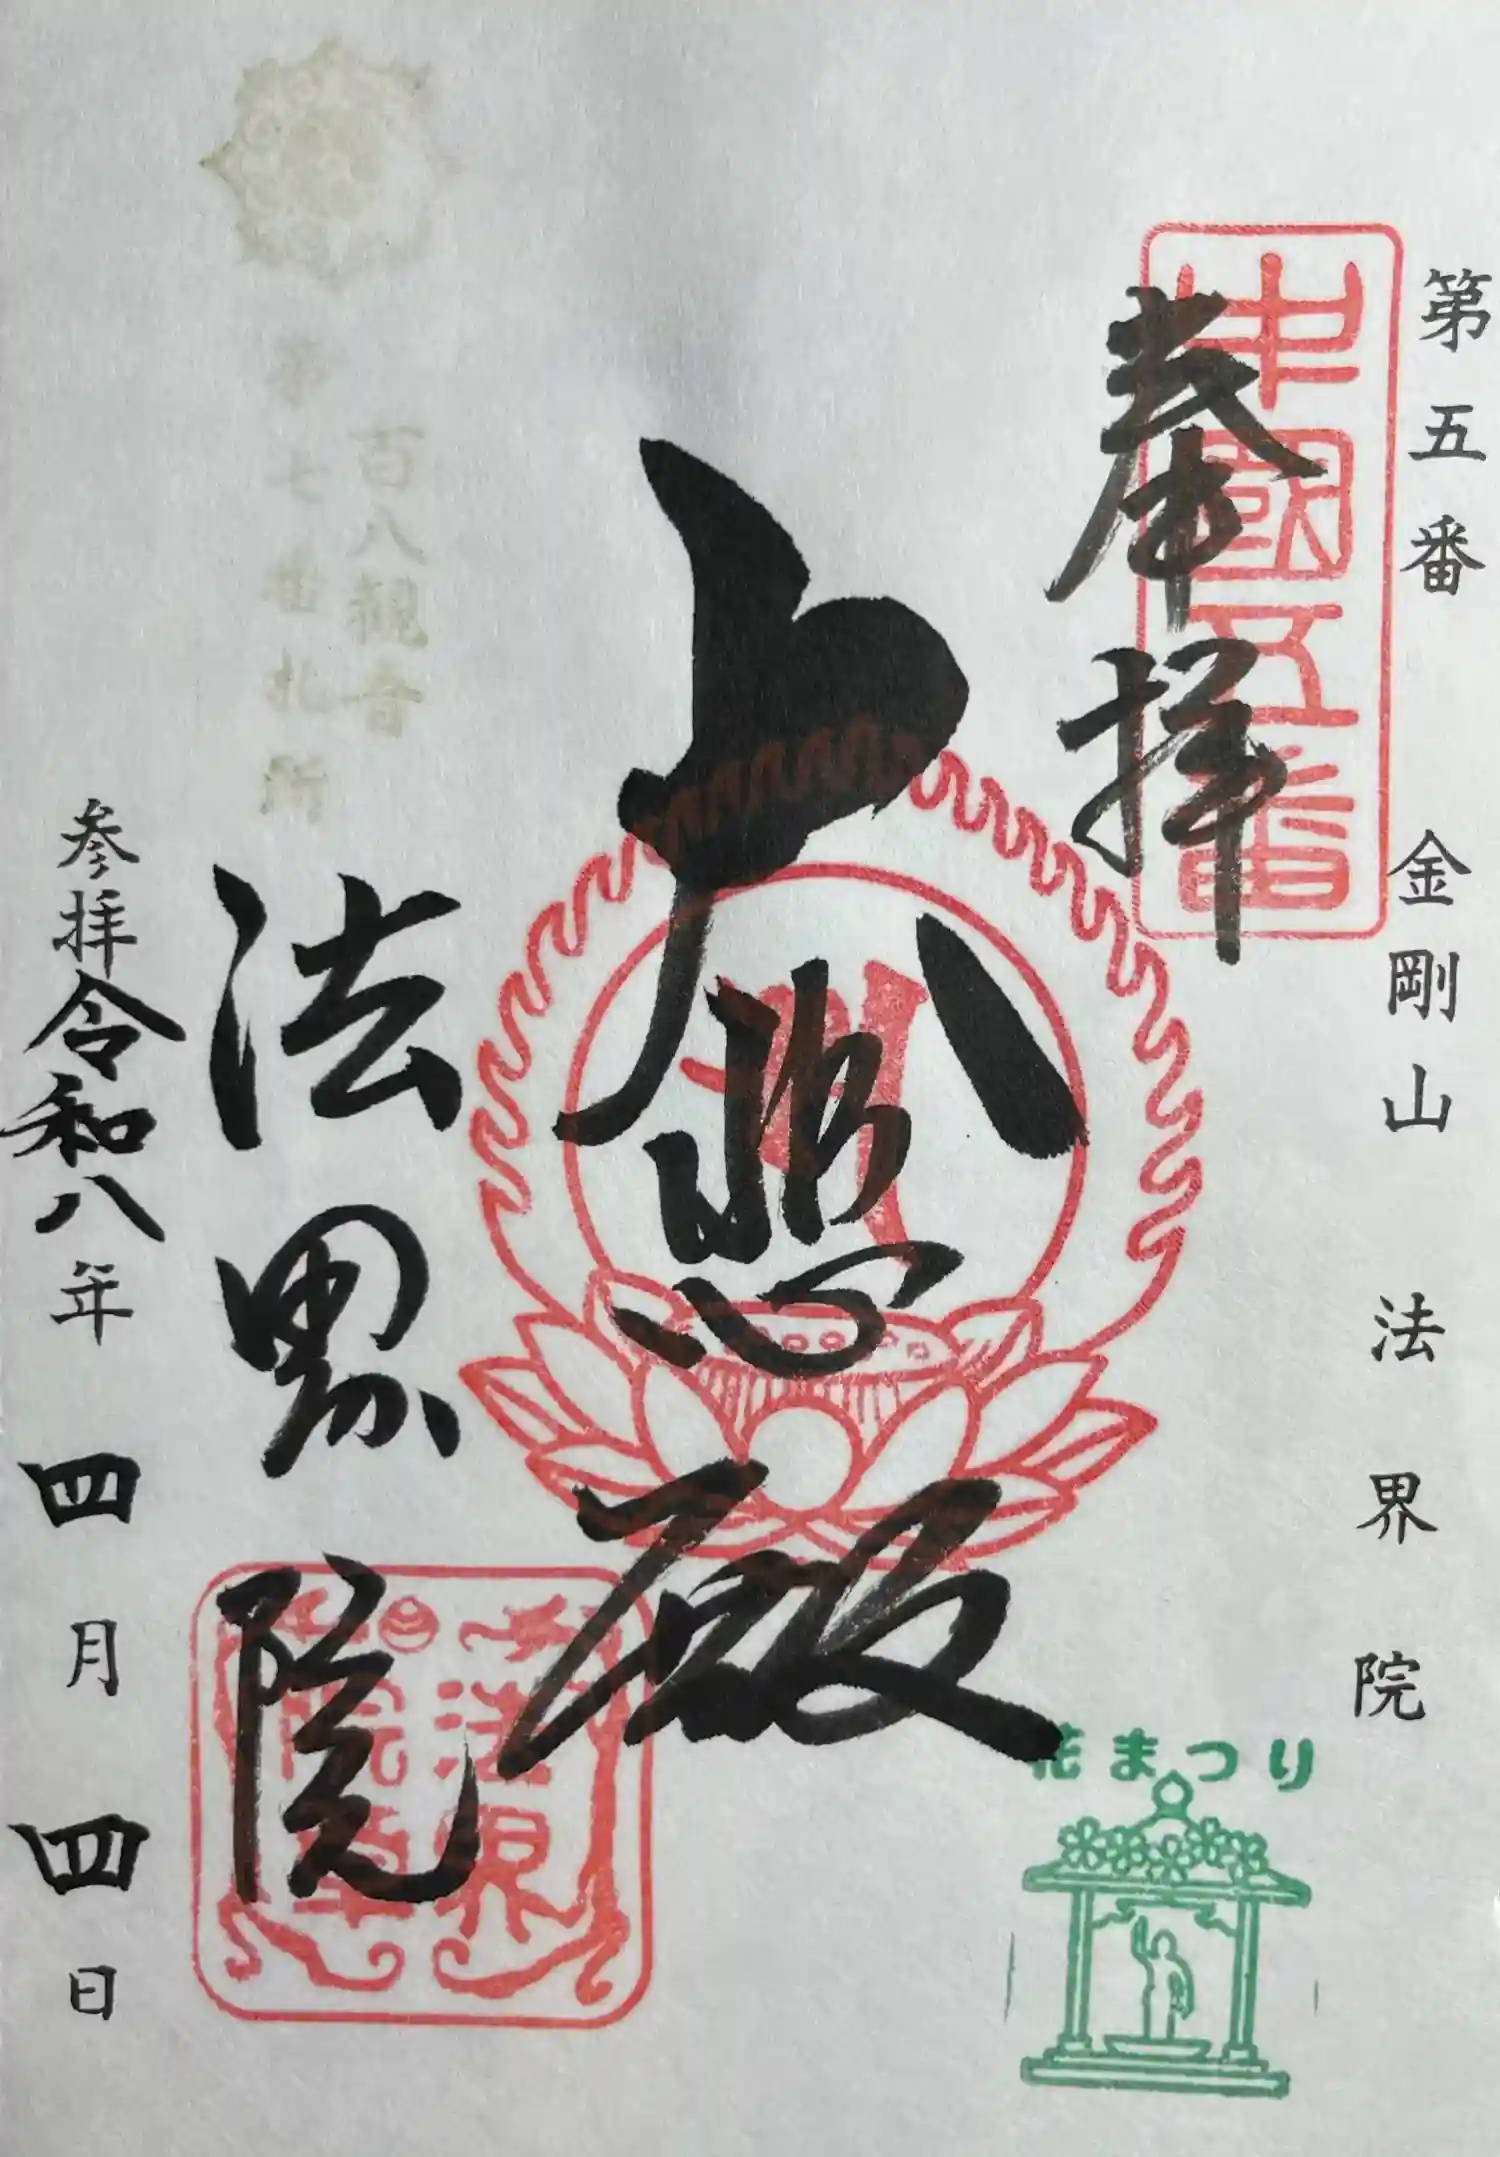 第五番 金剛山 法界院
奉拝
中國五番
大悲殿
花まつり
百八観音
第七番札所
法界院
法界院章
参拝令和八年四月四日